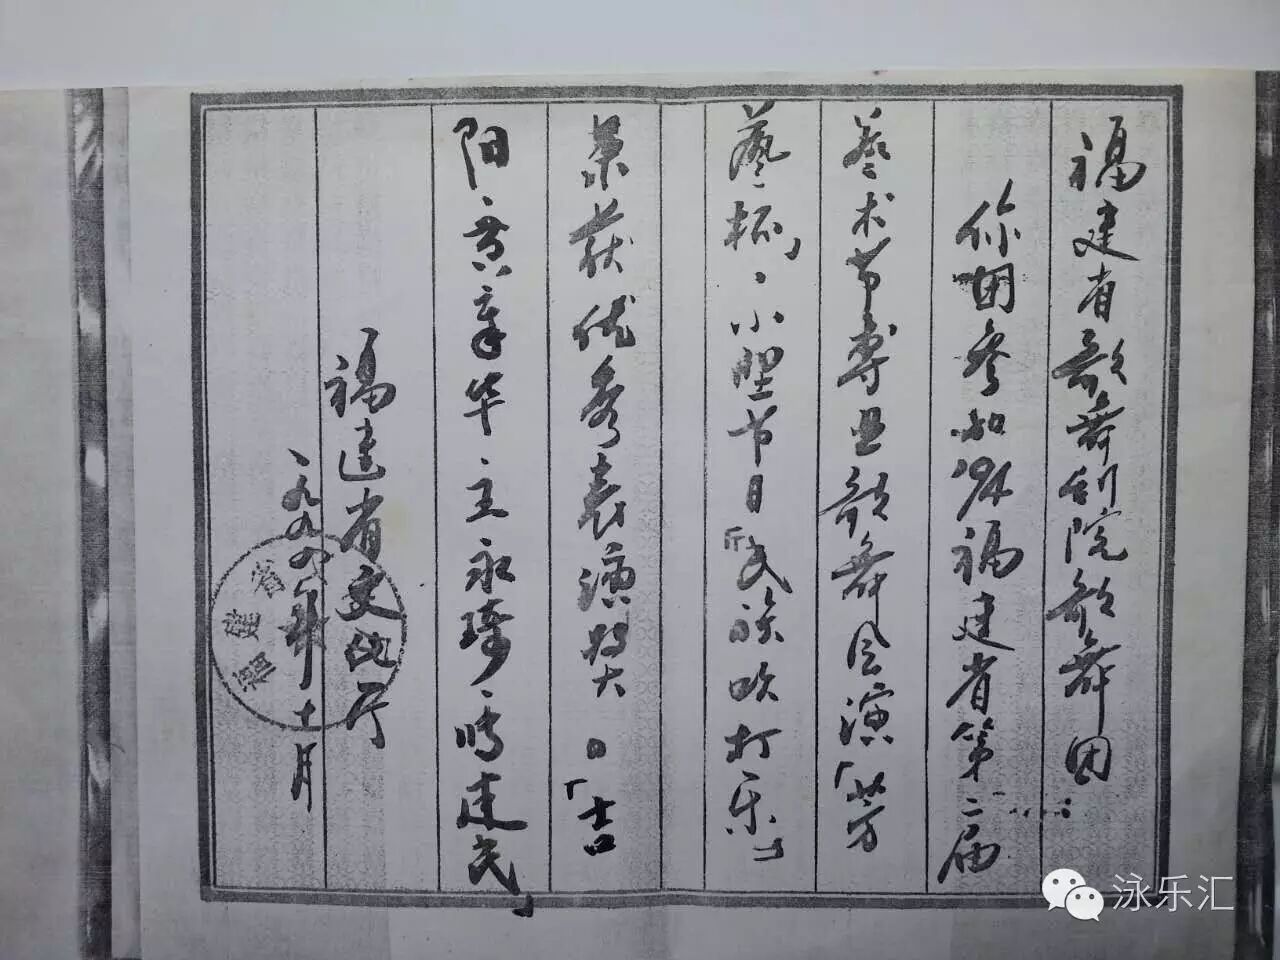 福建省歌舞剧院歌舞团
你团参加'94福建省第二届
艺术节专业歌舞会演「芳
艺杯」、小型节目「民族吹打乐」
荣获优秀表演奖。「吉
阳、黄章华、王永琦、建民」
福建省文化厅
一九九四年十月
福建省
泳乐汇